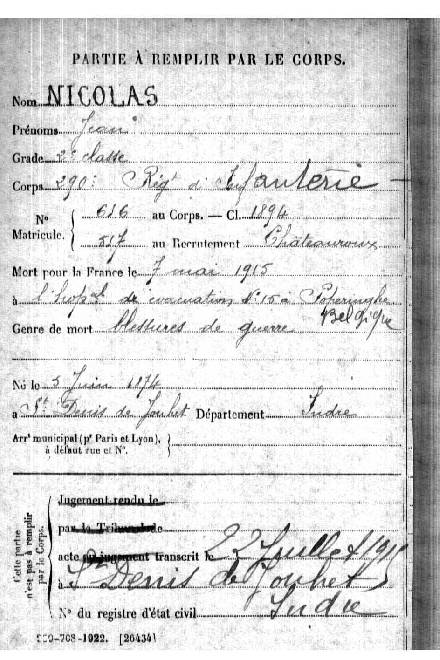 PARTIE À REMPLIR PAR LE CORPS.
Nom NICOLAS
Prénoms Jean
Grade 2e classe
Corps 290e Régt d'Infanterie
N° Matricule. { 616 au Corps. — Cl. 1894
517 au Recrutement Châteauroux
Mort pour la France le 7 mai 1915
à l'hopal de evacuation N° 15 à Poperinghe
Belgique
Genre de mort blessures de guerre
Né le 5 Juin 1874
à St Denis de Jouhet Département Indre
Arrt municipal (pr Paris et Lyon), à défaut rue et N°. }
Cette partie n'est pas à remplir par le Corps.
Jugement rendu le
par le Tribunal de
acte ou jugement transcrit le 22 Juillet 1915
à St Denis de Jouhet
Indre
N° du registre d'état civil
-708-1922. [26434]